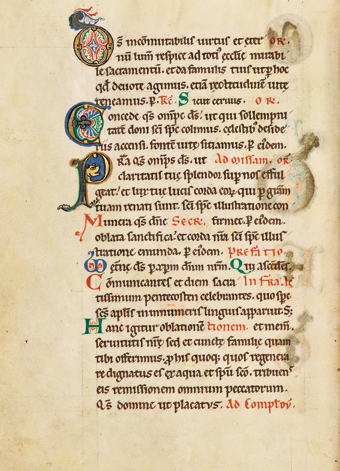 Ds incōmutabilis uirtus et eter OR.
nū lum̄. respice ad toti' ecclie mirabi
le sacramentū. et da famulis tuis ut p hoc
qd deuote agimus. etiā
teneamus. p. Sicut ceruus. OR.
Concede qs omīps ds. ut qui sollempni
tate doni sc̄i sp̄c colimus. celestib; deside
riis accensi. fontē uite sitiamus. P eidem.
PRa qs omīps ds. ut Ad missam. OR
claritatis tue splendor sup nos efful
geat. et lux tue lucis corda eoꝝ. qui p gr̄am
tuam renati sunt. sc̄i sp̄c illustratione con
Munera qs dn̄e Secr. firmet. p eidem.
oblata sanctifica. et corda nr̄a sc̄i sp̄c illus
tratione emunda. P eidem. PREFATIO
et̄ne ds. p xp̄m dn̄m nr̄m. Qui ascendes.
Cōmunicantes et diem sacra INFRA
tissimum pentecosten celebrantes. quo sp̄c
sc̄s aplis innumeris linguis apparuit. S;
Hanc igitur oblationē tionem. et mem̄.
seruitutis nr̄e. sed et cuncte familie quam
tibi offerimus. p his quoq; quos regenera
re dignatus es ex aqua et sp̄u sc̄o. tribuens
eis remissionem omnium peccatorum.
Qs domine ut placatus. Ad Compl